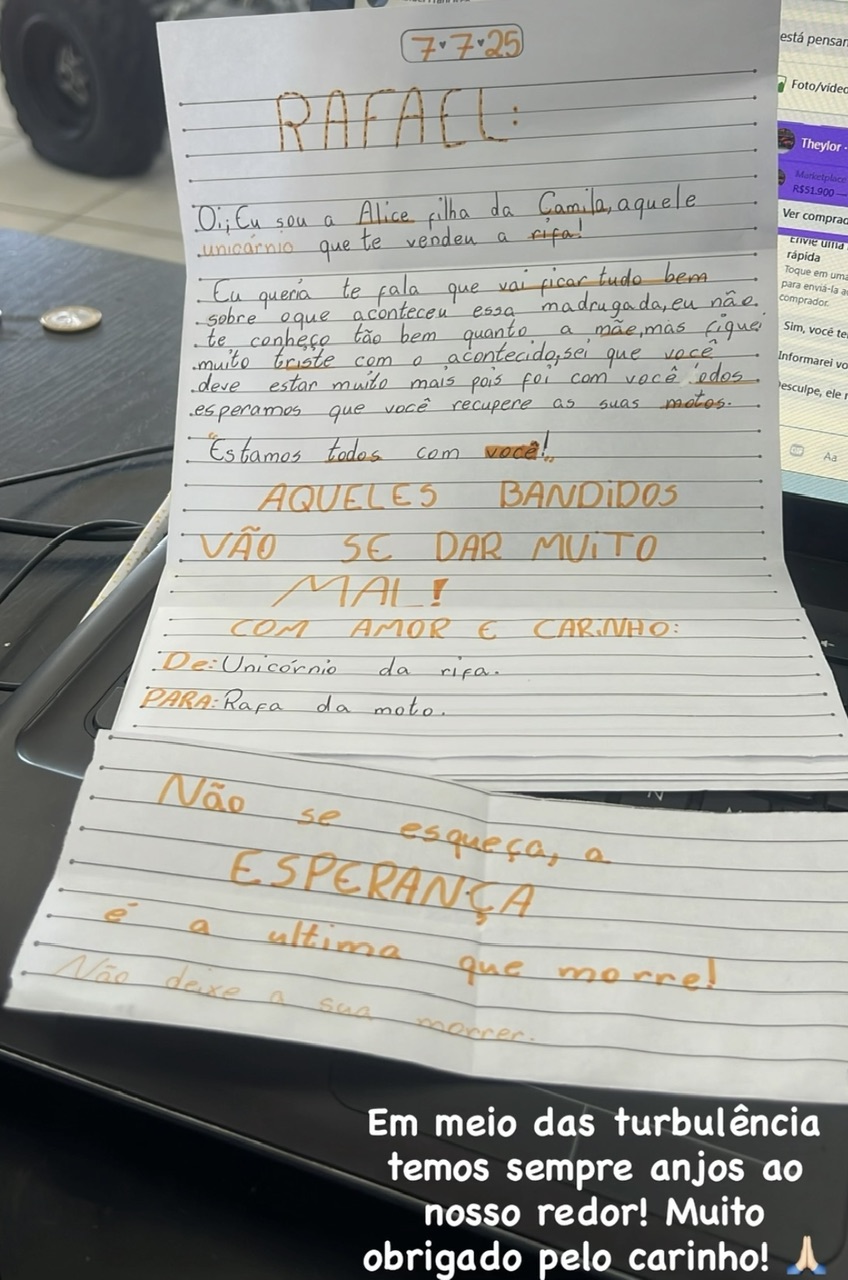 7•7•25
RAFAEL:
Oi, Eu sou a Alice filha da Camila, aquele
unicárnio que te vendeu a rifa!
Eu queria te fala que vai ficar tudo bem
sobre oque aconteceu essa madrugada, eu não
te conheço tão bem quanto a mãe, mas fiquei
muito triste com o acontecido, sei que você
deve estar muito mais pois foi com você odos
esperamos que você recupere as suas motos.
"Estamos todos com você!"
AQUELES BANDiDOS
VÃO SE DAR MUiTO
MAL!
COM AMOR E CARiNHO:
De: Unicórnio da rifa.
PARA: Rafa da moto.
Não se esqueça, a
ESPERANÇA
é a ultima que morre!
Não deixe a sua morrer.
está pensan
Foto/vídeo
Theylor ·
Marketplace
R$51.900
Ver comprad
Envie uma
rápida
Toque em uma
para enviá-la ao
comprador.
Sim, você te
Informarei vo
esculpe, ele n
GIF Aa
Em meio das turbulência
temos sempre anjos ao
nosso redor! Muito
obrigado pelo carinho! 🙏🏻